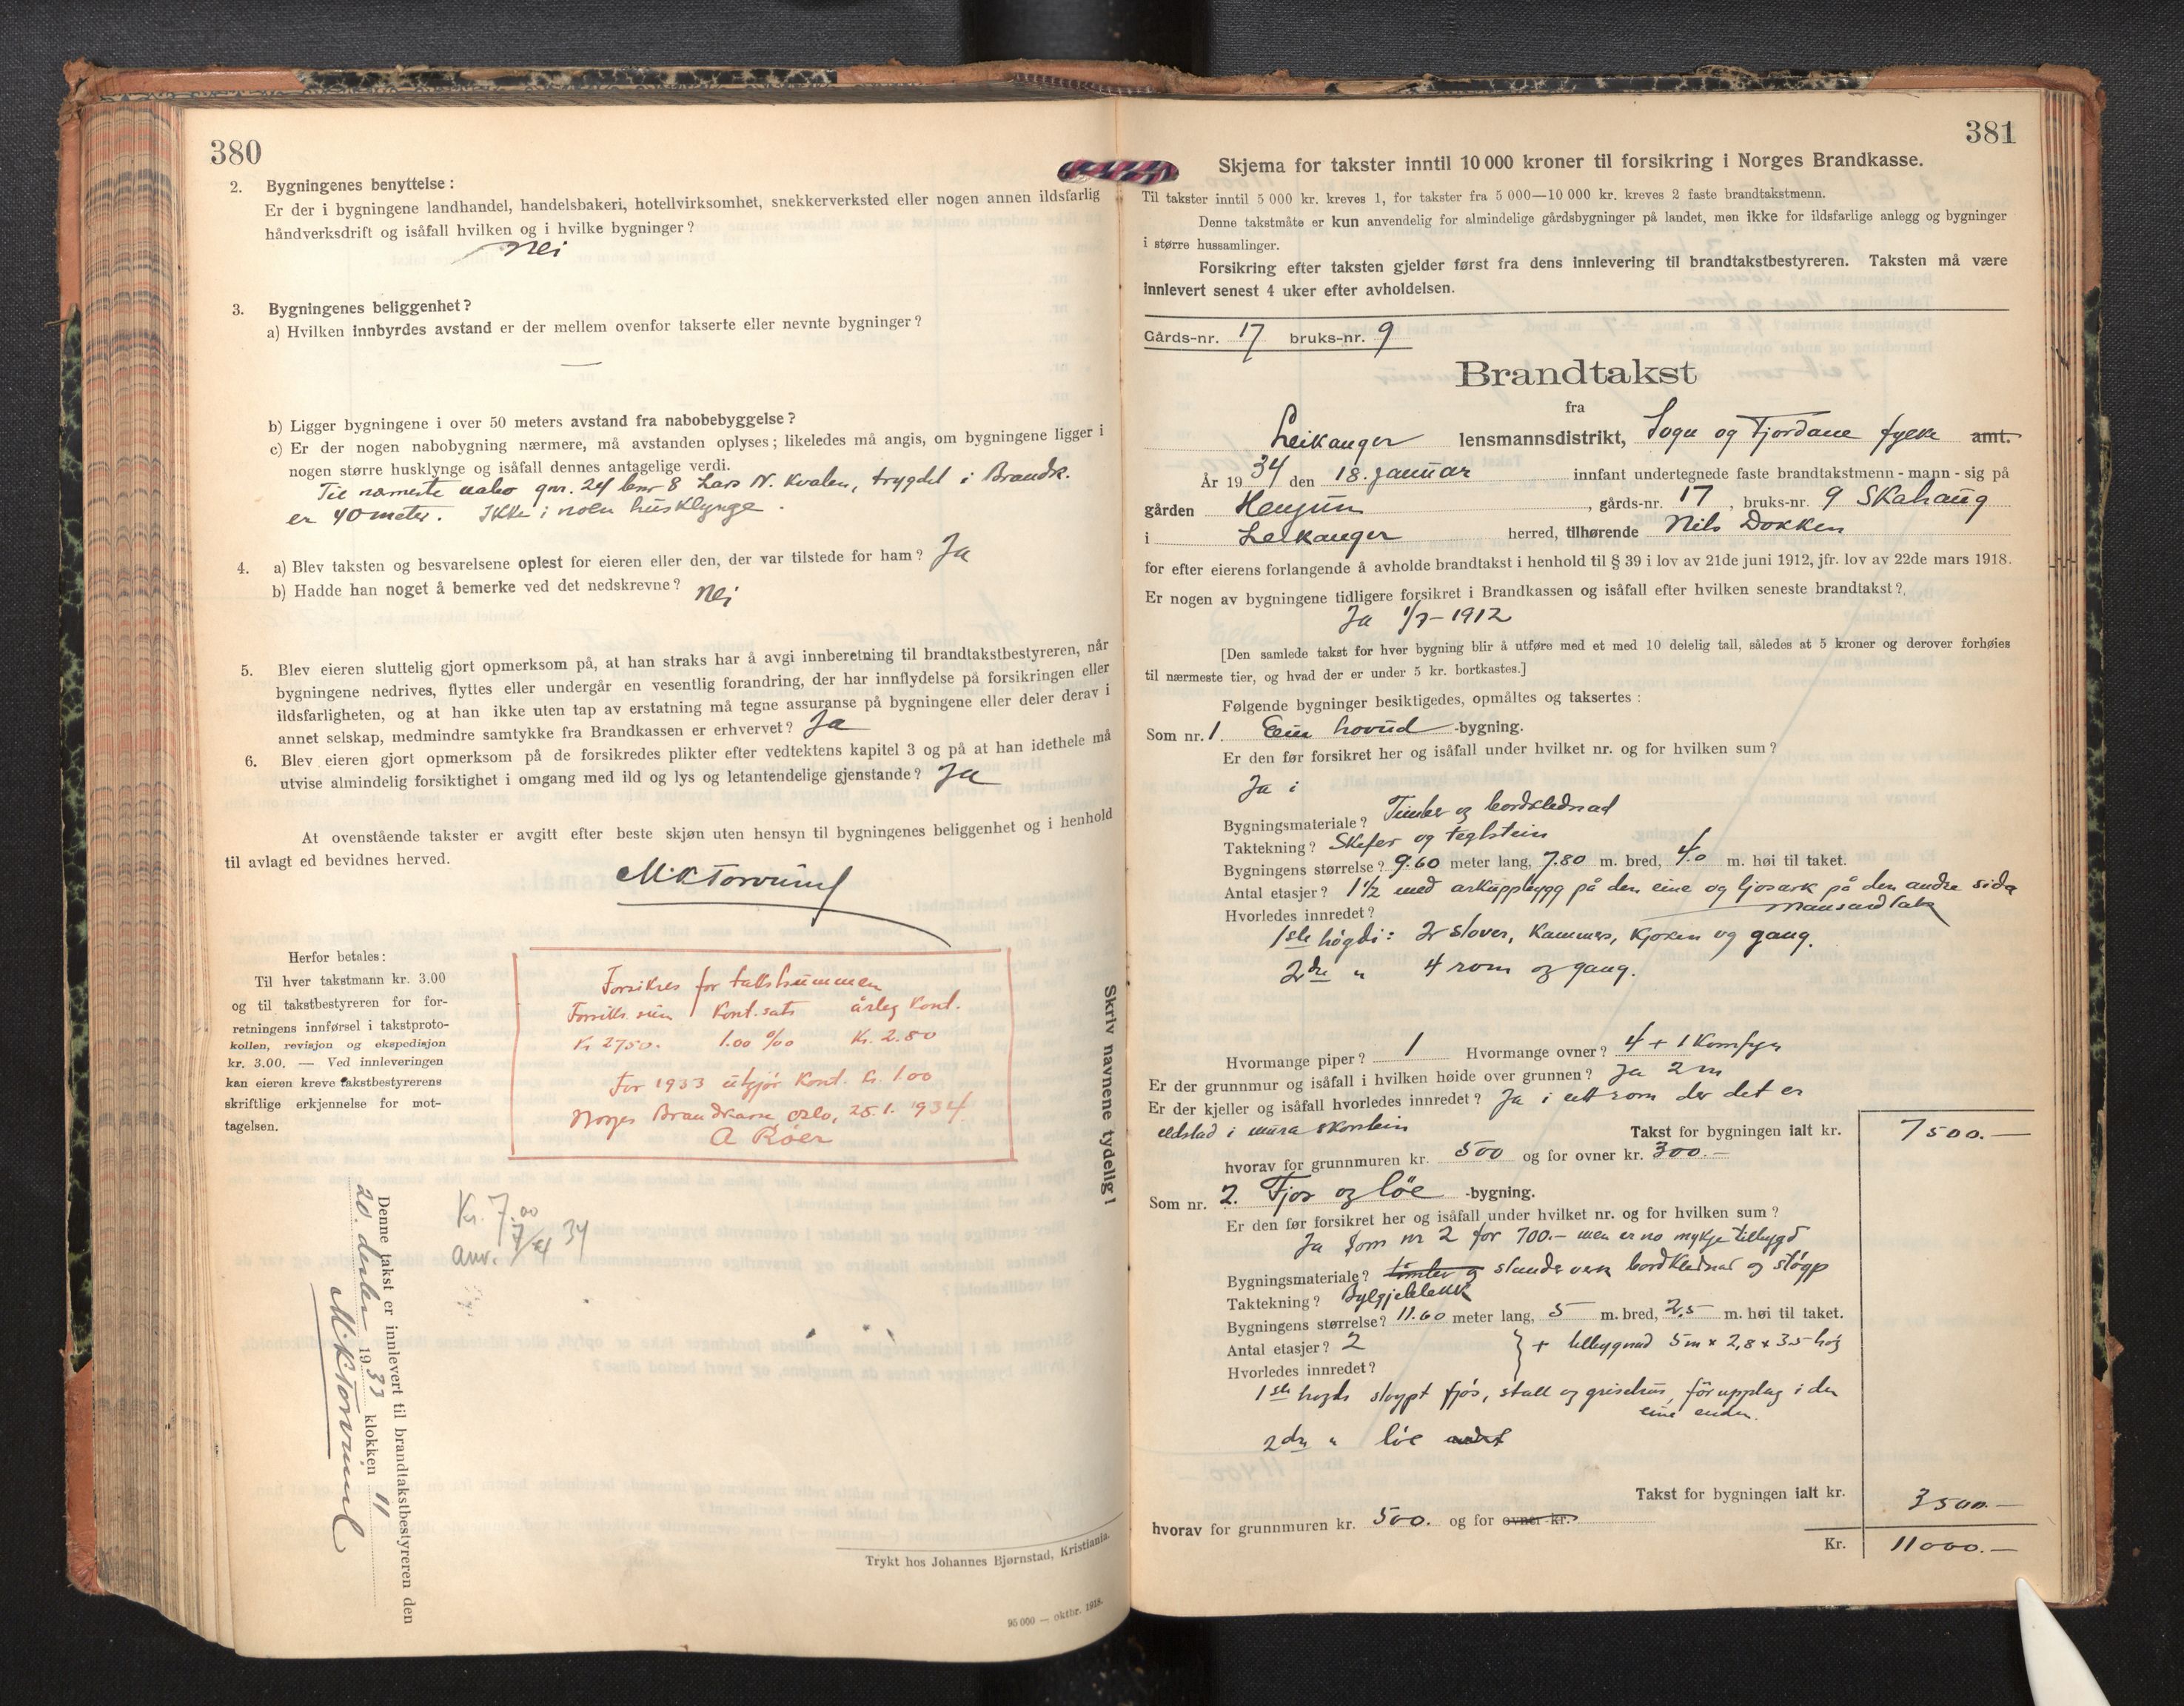 380
2. Bygningenes benyttelse:
Er der i bygningene landhandel, handelsbakeri, hotellvirksomhet, snekkerverksted eller nogen annen ildsfarlig
håndverksdrift og isåfall hvilken og i hvilke bygninger?
Nei
3. Bygningenes beliggenhet?
a) Hvilken innbyrdes avstand er der mellem ovenfor takserte eller nevnte bygninger?
—
b) Ligger bygningene i over 50 meters avstand fra nabobebyggelse?
c) Er der nogen nabobygning nærmere, må avstanden oplyses; likeledes må angis, om bygningene ligger i
nogen større husklynge og isåfall dennes antagelige verdi.
Til næmeste nabo gnr. 24 bnr 8 Lars N. Kvalen, trygdet i Brandk.
er 40 meter. Ikke i noen husklynge.
4. a) Blev taksten og besvarelsene oplest for eieren eller den, der var tilstede for ham? Ja
b) Hadde han noget å bemerke ved det nedskrevne? Nei
5. Blev eieren sluttelig gjort opmerksom på, at han straks har å avgi innberetning til brandtakstbestyreren, når
bygningene nedrives, flyttes eller undergår en vesentlig forandring, der har innflydelse på forsikringen eller
ildsfarligheten, og at han ikke uten tap av erstatning må tegne assuranse på bygningene eller deler derav i
annet selskap, medmindre samtykke fra Brandkassen er erhvervet? Ja
6. Blev eieren gjort opmerksom på de forsikredes plikter efter vedtektens kapitel 3 og på at han idethele må
utvise almindelig forsiktighet i omgang med ild og lys og letantendelige gjenstande? Ja
At ovenstående takster er avgitt efter beste skjøn uten hensyn til bygningenes beliggenhet og i henhold
til avlagt ed bevidnes herved.
M. K. Torvund
Herfor betales:
Til hver takstmann kr. 3.00
og til takstbestyreren for for-
retningens innførsel i takstproto-
kollen, revisjon og ekspedisjon
kr. 3.00. — Ved innleveringen
kan eieren kreve takstbestyrerens
skriftlige erkjennelse for mot-
tagelsen.
Forsikres for takstsummen
Forsikr. sum Kont. sats årleg Kont.
Kr 2750. 1.00 ‰ Kr. 2.80
For 1933 utgjør Kont. Kr. 1.00
Norges Brandkasse Oslo, 25.1. 1934.
A Röer
Kr. 7.00
anv. 7/4 34
Denne takst er innlevert til brandtakstbestyreren den
20. desber 1933 klokken 11
M. K. Torvund
Skriv navnene tydelig!
Trykt hos Johannes Bjørnstad, Kristiania.
95 000 — oktbr. 1918.
381
Skjema for takster inntil 10 000 kroner til forsikring i Norges Brandkasse.
Til takster inntil 5 000 kr. kreves 1, for takster fra 5 000—10 000 kr. kreves 2 faste brandtakstmenn.
Denne takstmåte er kun anvendelig for almindelige gårdsbygninger på landet, men ikke for ildsfarlige anlegg og bygninger
i større hussamlinger.
Forsikring efter taksten gjelder først fra dens innlevering til brandtakstbestyreren. Taksten må være
innlevert senest 4 uker efter avholdelsen.
Gårds-nr. 17 bruks-nr. 9
Brandtakst
fra
Leikanger lensmannsdistrikt, Sogn og Fjordane fylke amt.
År 1934 den 18. januar innfant undertegnede faste brandtakstmenn - mann - sig på
gården Henjum, gårds-nr. 17, bruks-nr. 9 Skahaug
i Leikanger herred, tilhørende Nils Dokken
for efter eierens forlangende å avholde brandtakst i henhold til § 39 i lov av 21de juni 1912, jfr. lov av 22de mars 1918.
Er nogen av bygningene tidligere forsikret i Brandkassen og isåfall efter hvilken seneste brandtakst?
Ja 1/7-1912
[Den samlede takst for hver bygning blir å utføre med et med 10 delelig tall, således at 5 kroner og derover forhøies
til nærmeste tier, og hvad der er under 5 kr. bortkastes.]
Følgende bygninger besiktigedes, opmåltes og taksertes:
Som nr. 1. Ein hovud -bygning.
Er den før forsikret her og isåfall under hvilket nr. og for hvilken sum?
Ja i
Bygningsmateriale? Timber og bordklednad
Taktekning? Skifer og teglstein
Bygningens størrelse? 9.60 meter lang, 7.80 m. bred, 4.0 m. høi til taket.
Antal etasjer? 1½ med arkuppbygg på den eine og ljosark på den andre sida
mansardtak
Hvorledes innredet?
1ste høgdi: 2 stover, kammer, kjøken og gang.
2dre " 4 rom og gang.
Hvormange piper? 1 Hvormange ovner? 4 + 1 Komfyr
Er der grunnmur og isåfall i hvilken høide over grunnen? Ja 2 m
Er der kjeller og isåfall hvorledes innredet? Ja i ett rom der det er
eldstad i mura skorstein
Takst for bygningen ialt kr. 7500.—
hvorav for grunnmuren kr. 500 og for ovner kr. 300.—
Som nr. 2. Fjos og løe -bygning.
Er den før forsikret her og isåfall under hvilket nr. og for hvilken sum?
Ja som nr 2 for 700.— men er no mykje tilbygd
Bygningsmateriale? timber og standerverk bordklednad og støyp
Taktekning? Bylgjeblekk
Bygningens størrelse? 11.60 meter lang, 5 m. bred, 2.5 m. høi til taket.
Antal etasjer? 2 } + tilbygnad 5 m x 2,8 x 3.5 høg
Hvorledes innredet?
1ste høgdi støypt fjøs, stall og grisehus, fôrupplag i den
eine enden.
2dre " løe
Takst for bygningen ialt kr. 3500.—
hvorav for grunnmuren kr. 500. og for ovner kr.
Kr. 11000.—